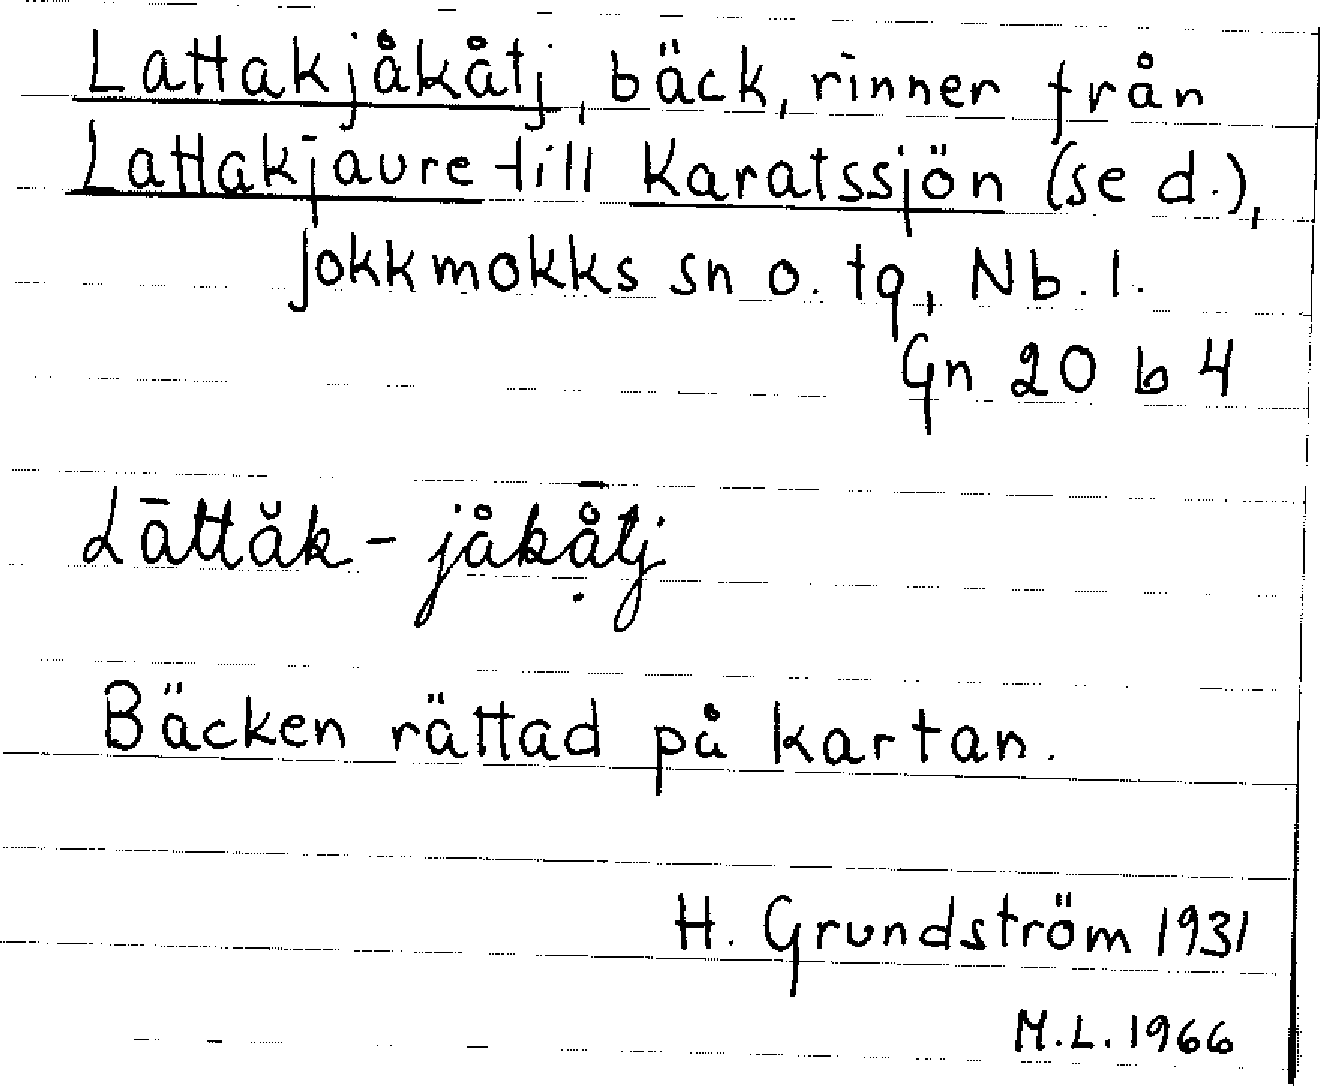 Lattakjåkåtj, bäck, rinner från
Lattakjaure till Karatssjön (se d.),
Jokkmokks sn o. tg, Nb. l.
Gn 20 b 4
Lāttăk - jåkạ̊̄tj
Bäcken rättad på kartan.
H. Grundström 1931
M.L. 1966